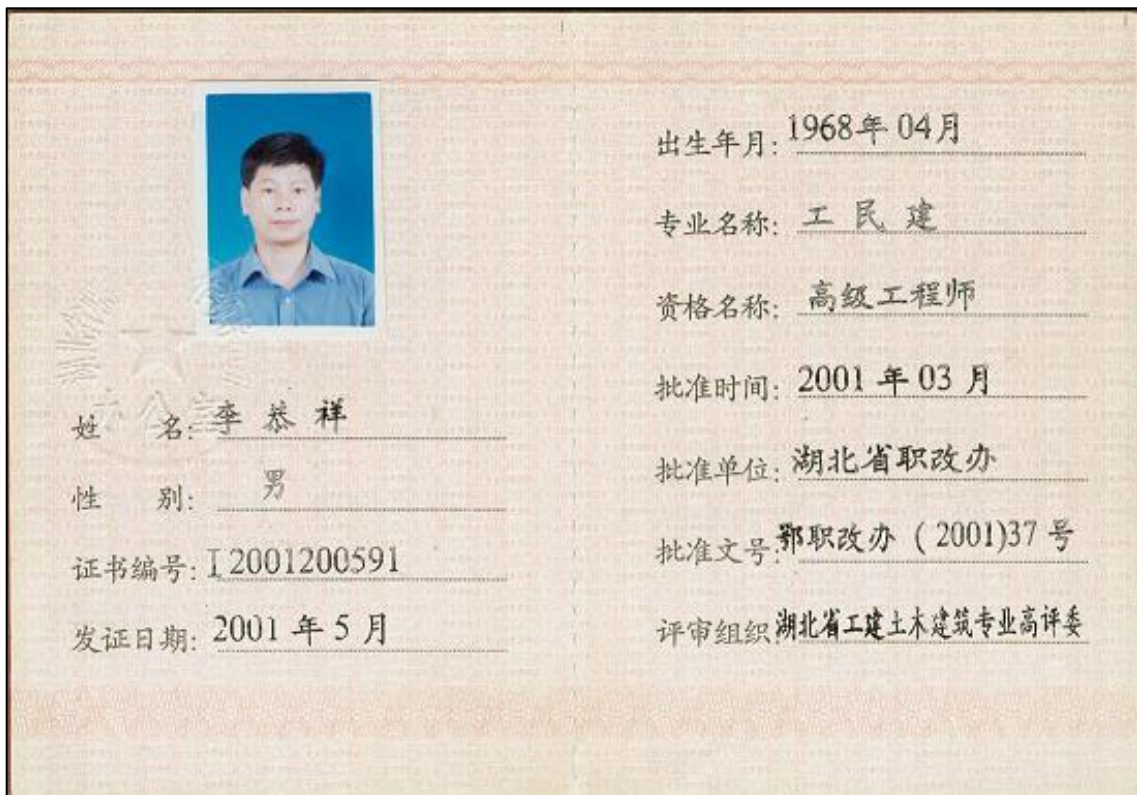 姓 名: 李恭祥
性 别: 男
证书编号: I2001200591
发证日期: 2001 年 5 月
出生年月: 1968年 04月
专业名称: 工民建
资格名称: 高级工程师
批准时间: 2001 年 03 月
批准单位: 湖北省职改办
批准文号: 鄂职改办 ( 2001)37 号
评审组织 湖北省工建土木建筑专业高评委